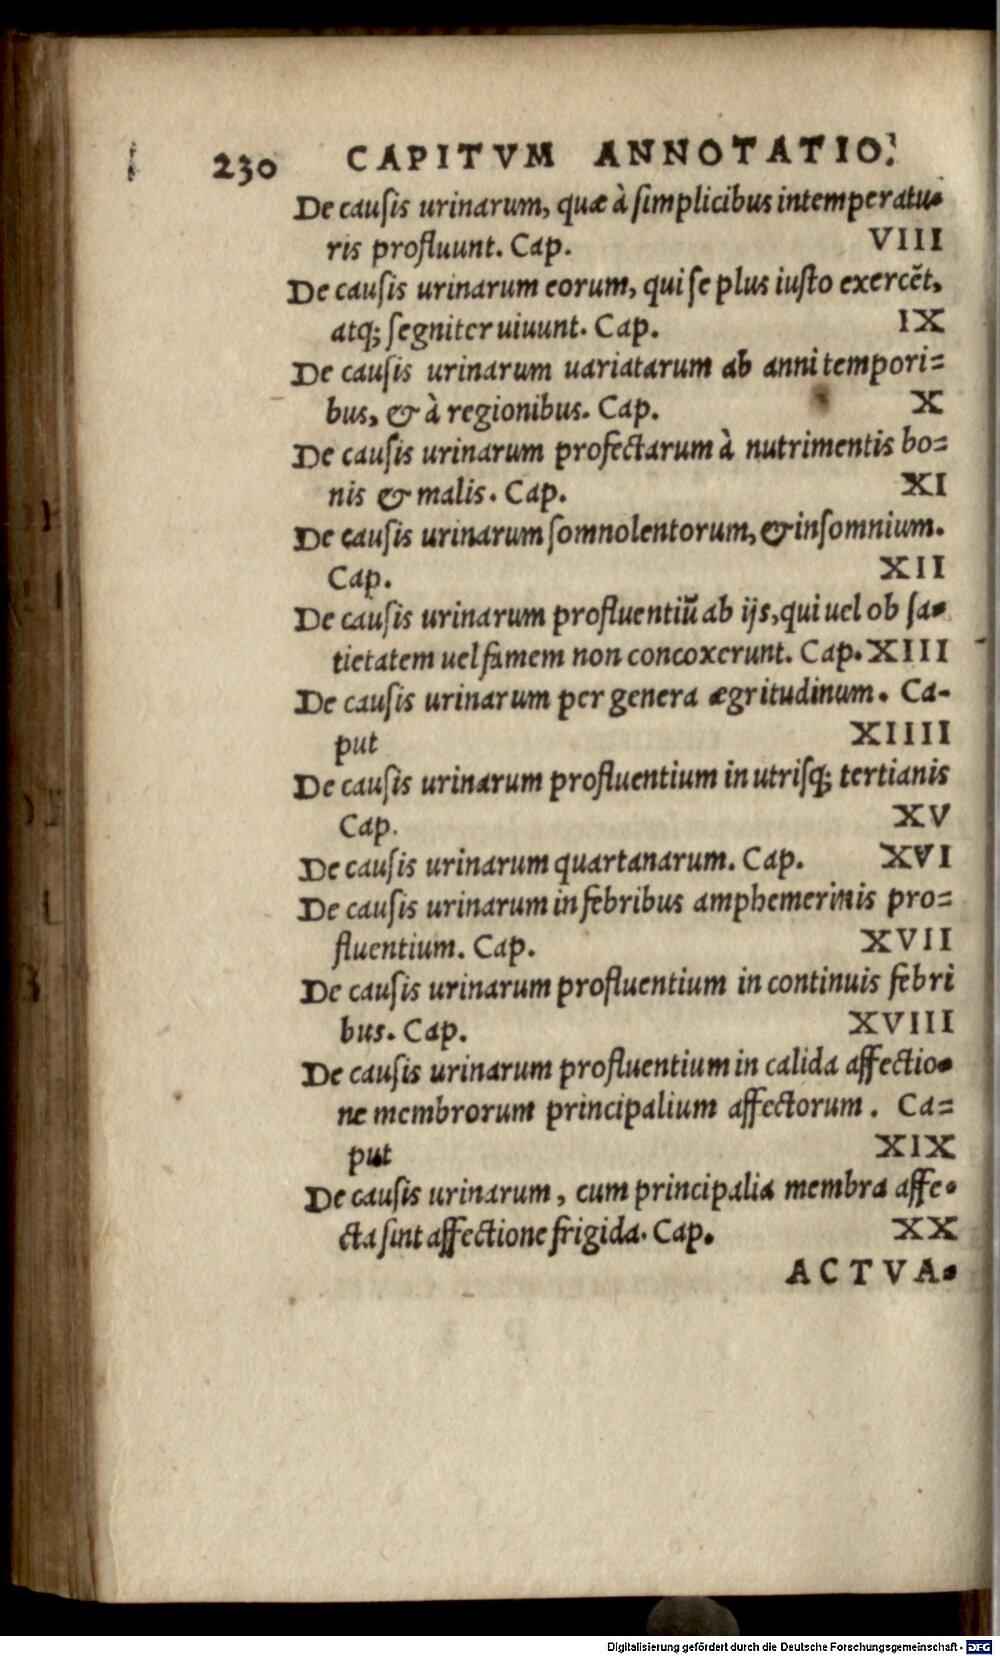 230 CAPITVM ANNOTATIO.
De causis urinarum, quæ à simplicibus intemperatu-
ris profluunt. Cap. VIII
De causis urinarum eorum, qui se plus iusto exercẽt,
atq; segniter uiuunt. Cap. IX
De causis urinarum uariatarum ab anni tempori=
bus, & à regionibus. Cap. X
De causis urinarum profectarum à nutrimentis bo=
nis & malis. Cap. XI
De causis urinarum somnolentorum, & insomnium.
Cap. XII
De causis urinarum profluentiũ ab ijs, qui uel ob sa-
tietatem uel famem non concoxerunt. Cap. XIII
De causis urinarum per genera ægritudinum. Ca-
put XIIII
De causis urinarum profluentium in utrisq; tertianis
Cap. XV
De causis urinarum quartanarum. Cap. XVI
De causis urinarum in febribus amphemerinis pro=
fluentium. Cap. XVII
De causis urinarum profluentium in continuis febri
bus. Cap. XVIII
De causis urinarum profluentium in calida affectio-
ne membrorum principalium affectorum. Ca=
put XIX
De causis urinarum, cum principalia membra affe-
cta sint affectione frigida. Cap. XX
ACTVA-
Digitalisierung gefördert durch die Deutsche Forschungsgemeinschaft - DFG